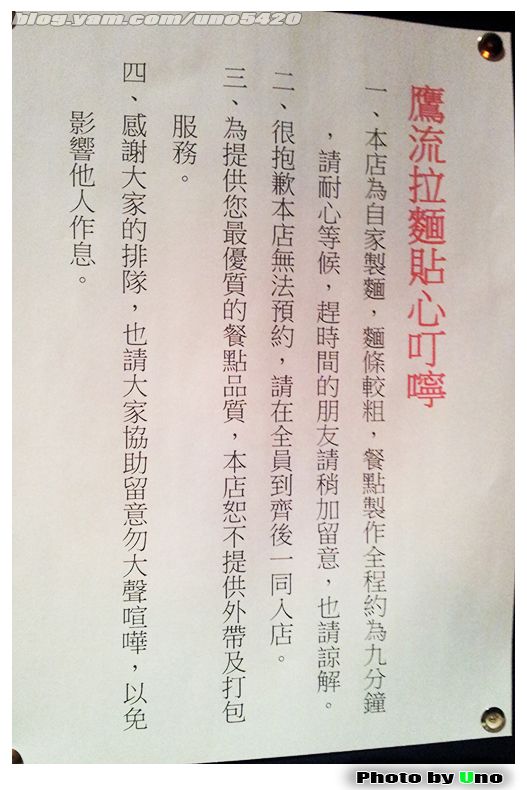 blog.yam.com/uno5420
鷹流拉麵貼心叮嚀
一、本店為自家製麵，麵條較粗，餐點製作全程約為九分鐘
，請耐心等候，趕時間的朋友請稍加留意，也請諒解。
二、很抱歉本店無法預約，請在全員到齊後一同入店。
三、為提供您最優質的餐點品質，本店恕不提供外帶及打包
服務。
四、感謝大家的排隊，也請大家協助留意勿大聲喧嘩，以免
影響他人作息。
Photo by Uno